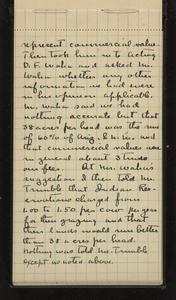 represent commercial value.
Then took him in to Acting
D.F. Walin and asked Mr.
Walin whether any other
information we had were
in his opinion applicable.
Mr. Walin said we had
nothing accurate but that
38 acres per head was the run
of 60% of Ariz. & N. M. and
that commercial values were
in general about 3 times
our fees. At Mr. Walin's
suggestion I then told Mr.
Trumbl that Indian Res-
ervations charged from
1.00 to 1.50 per cow per year
for thin grazing and that
their lands would run better
than 38 acres per head.
Nothing was told Mr. Trumble
except as noted above.